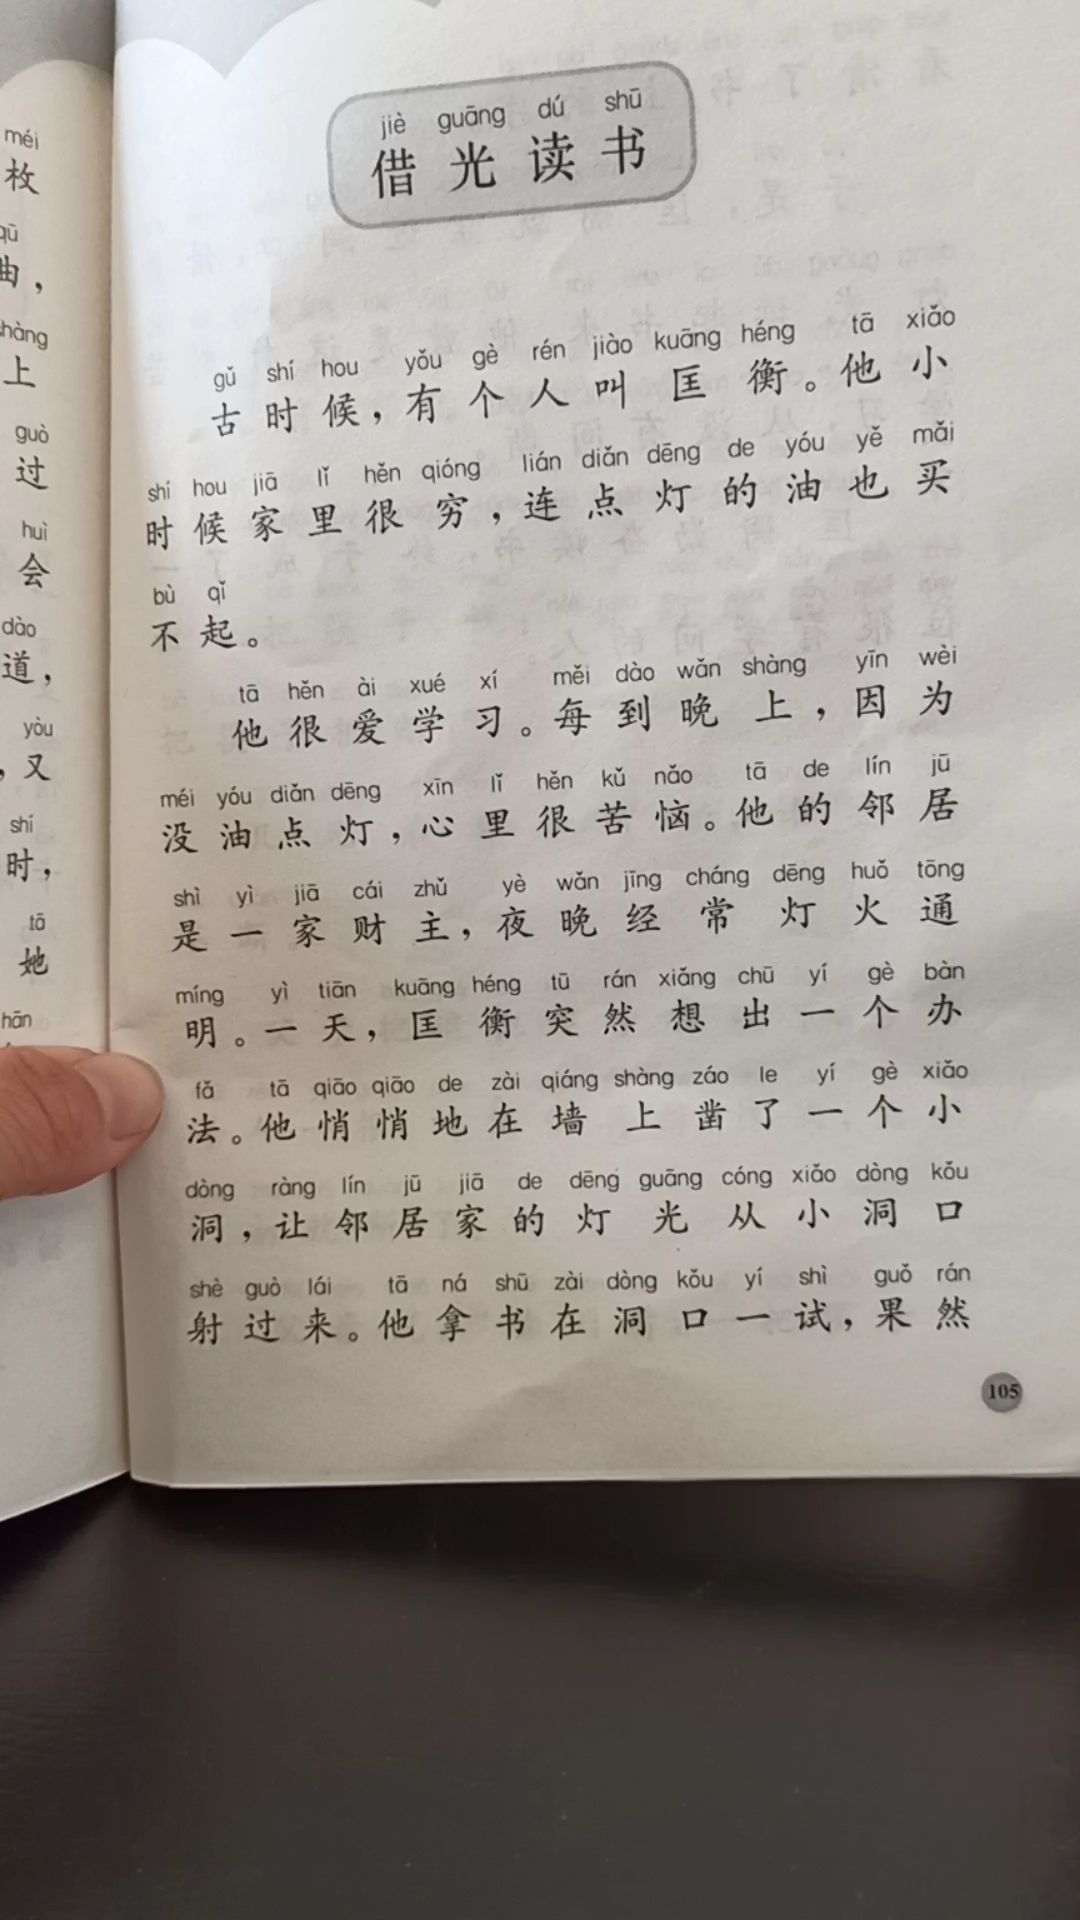 méi
枚
qū
曲，
shàng
上
guò
过
huì
会
dào
道，
yòu
，又
shí
时，
tō
她
hān
jiè guāng dú shū
借光读书
gǔ shí hou yǒu gè rén jiào kuāng héng tā xiǎo
古时候，有个人叫匡衡。他小
shí hou jiā lǐ hěn qióng lián diǎn dēng de yóu yě mǎi
时候家里很穷，连点灯的油也买
bù qǐ
不起。
tā hěn ài xué xí měi dào wǎn shàng yīn wèi
他很爱学习。每到晚上，因为
méi yóu diǎn dēng xīn lǐ hěn kǔ nǎo tā de lín jū
没油点灯，心里很苦恼。他的邻居
shì yì jiā cái zhǔ yè wǎn jīng cháng dēng huǒ tōng
是一家财主，夜晚经常灯火通
míng yì tiān kuāng héng tū rán xiǎng chū yí gè bàn
明。一天，匡衡突然想出一个办
fǎ tā qiāo qiāo de zài qiáng shàng záo le yí gè xiǎo
法。他悄悄地在墙上凿了一个小
dòng ràng lín jū jiā de dēng guāng cóng xiǎo dòng kǒu
洞，让邻居家的灯光从小洞口
shè guò lái tā ná shū zài dòng kǒu yí shì guǒ rán
射过来。他拿书在洞口一试，果然
105